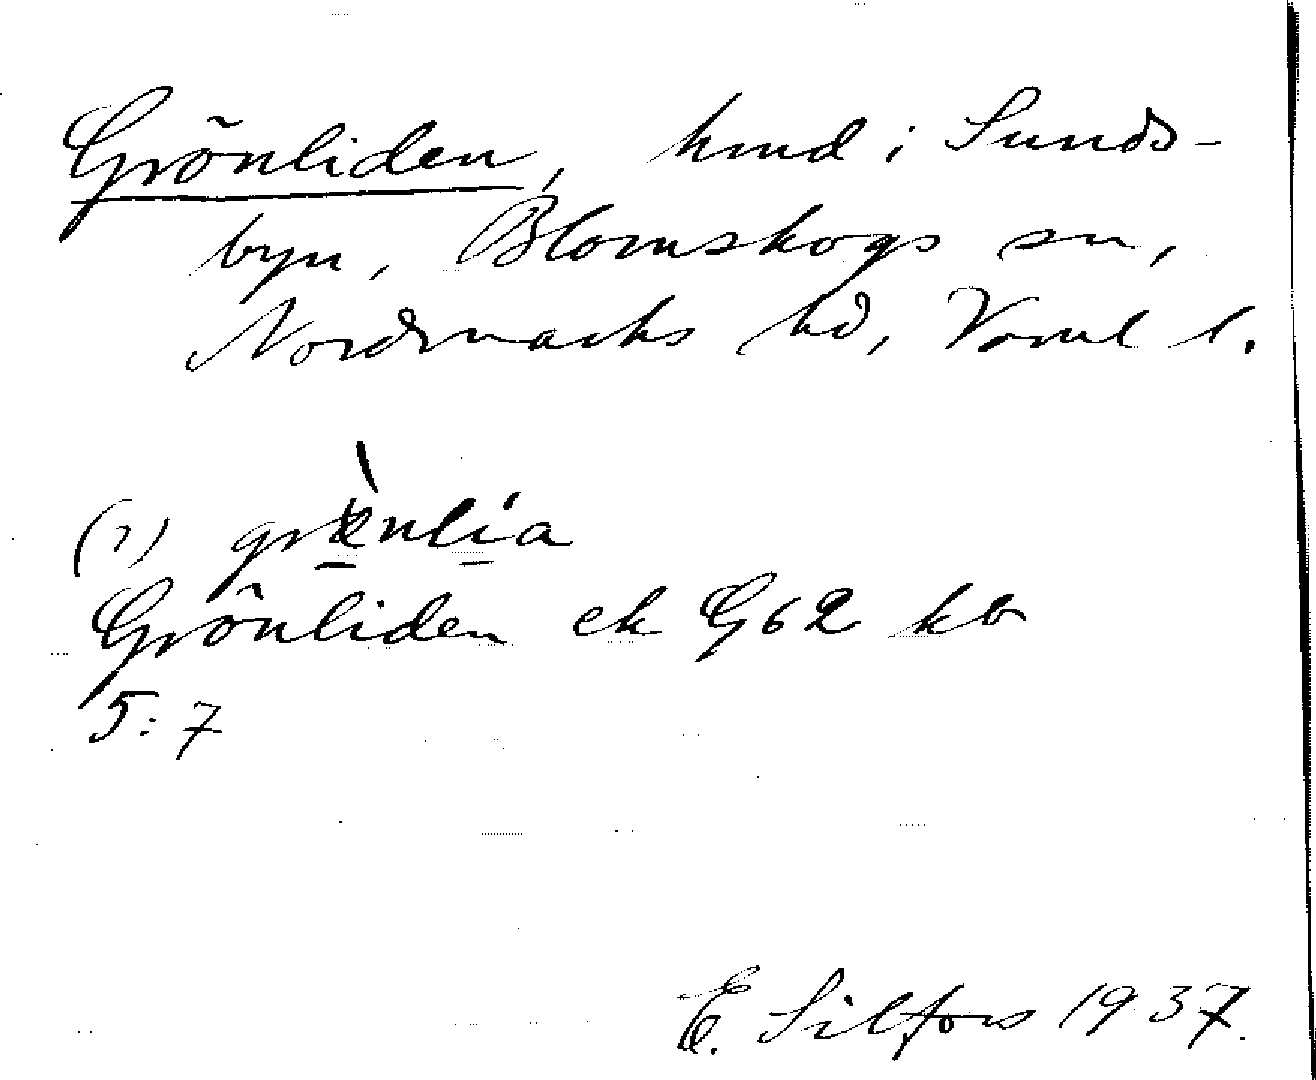 Grönliden, hmd i Sunds-
byn, Blomskogs sn,
Nordmarks hd, Vrml l.
(1) grænlia
Grönliden ek G62 kb
5:7
E. Silfors 1937.